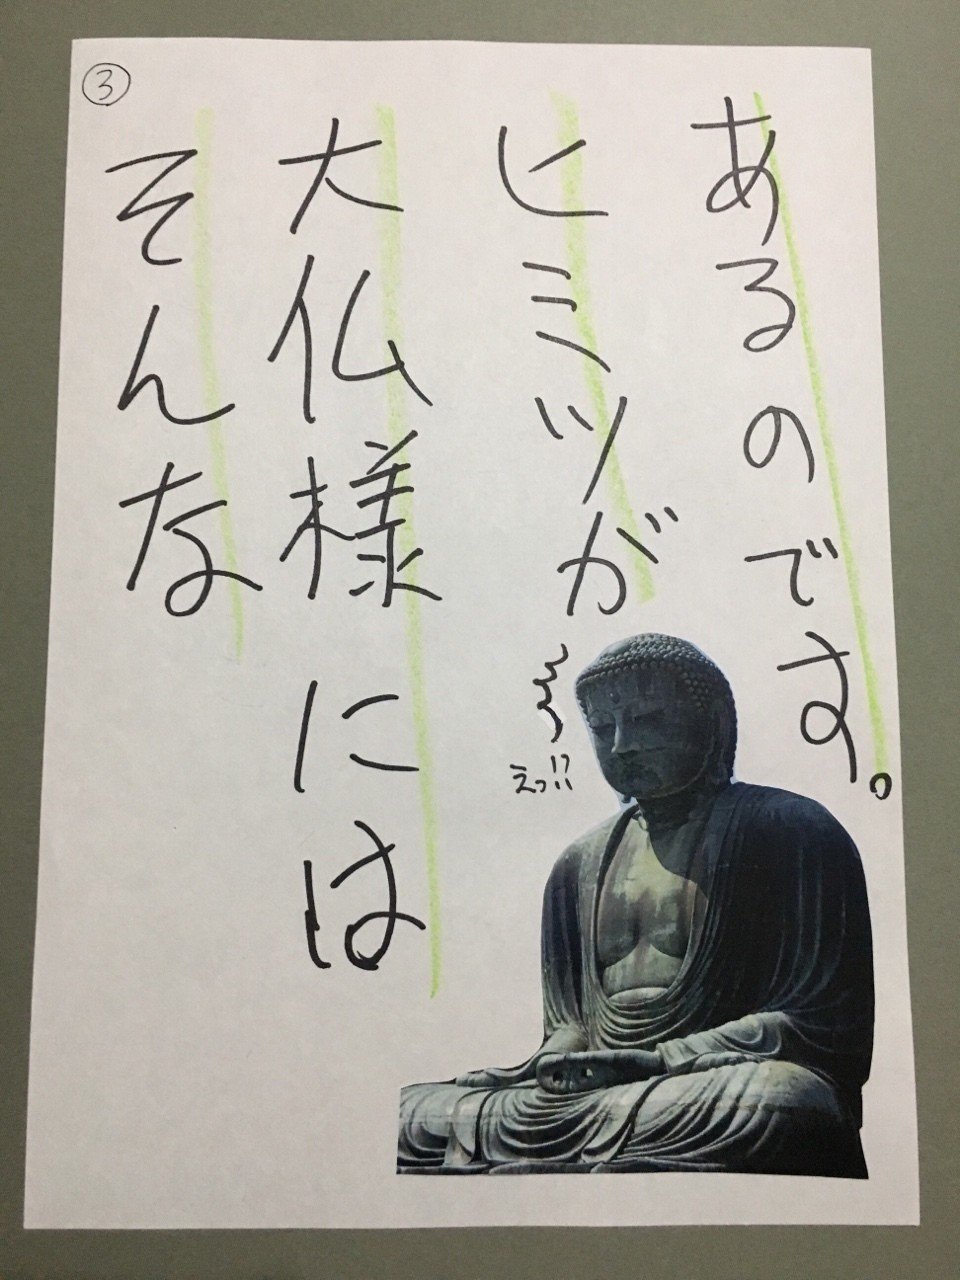 ③
そんな
大仏様には
ヒミツが
あるのです。
えっ!!